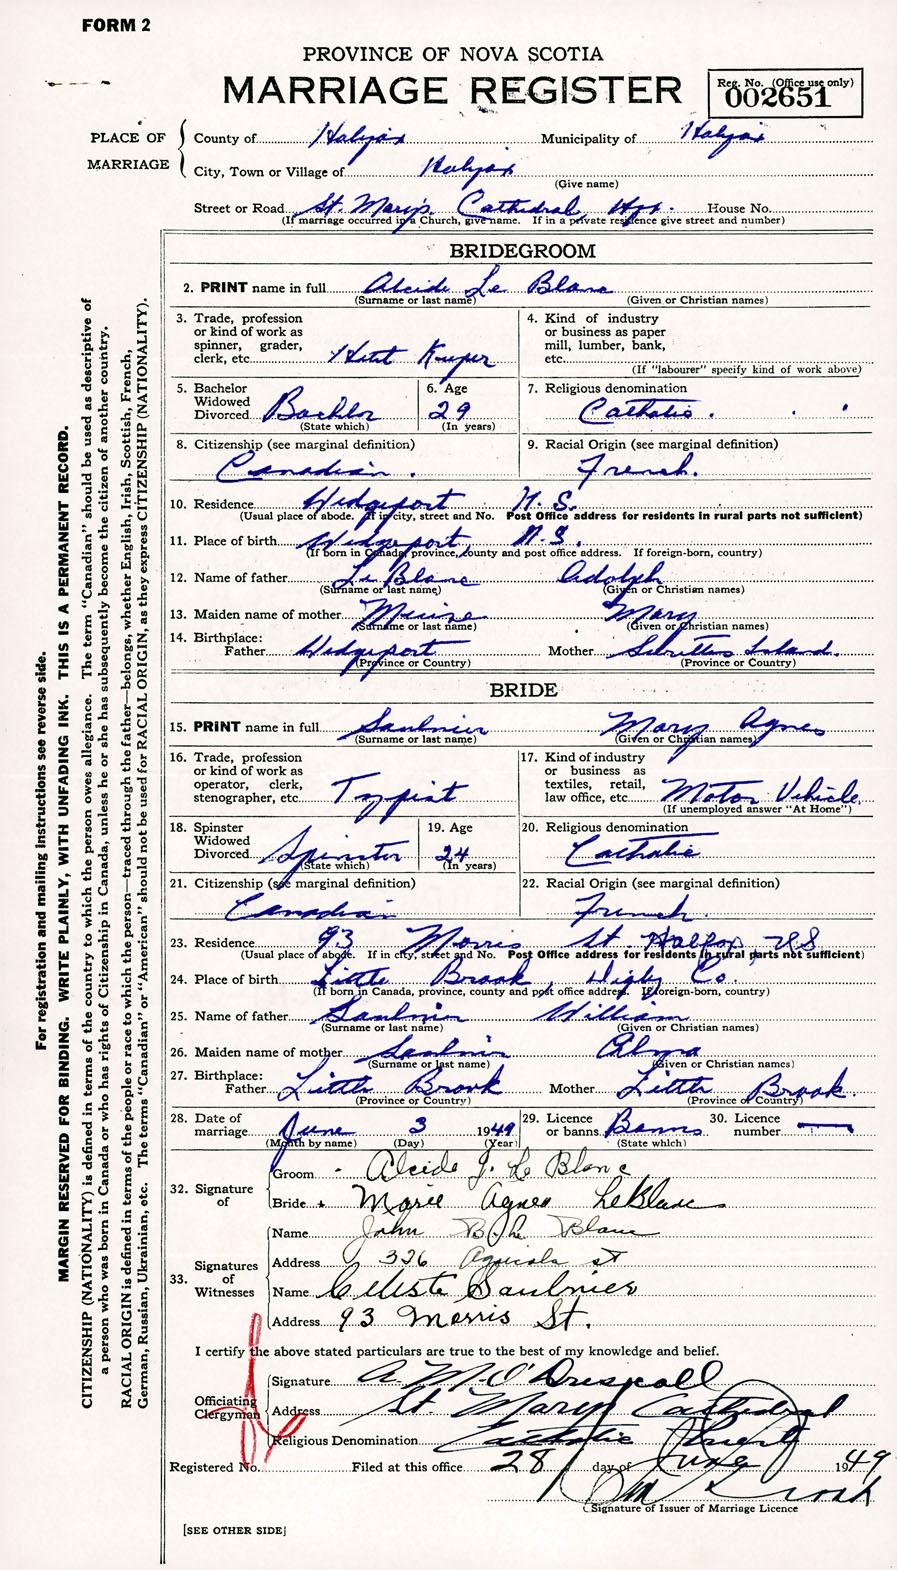 FORM 2
PROVINCE OF NOVA SCOTIA
MARRIAGE REGISTER
Reg. No. (Office use only)
002651
PLACE OF MARRIAGE
County of Halifax Municipality of Halifax
City, Town or Village of Halifax
(Give name)
Street or Road St. Mary's Cathedral, Hfx. House No.
(If marriage occurred in a Church, give name. If in a private residence give street and number)
BRIDEGROOM
2. PRINT name in full Alcide Le Blanc
(Surname or last name) (Given or Christian names)
3. Trade, profession or kind of work as spinner, grader, clerk, etc. Keeper
4. Kind of industry or business as paper mill, lumber, bank, etc.
(If "labourer" specify kind of work above)
5. Bachelor Widowed Divorced Bachlor
(State which)
6. Age 29
(In years)
7. Religious denomination Catholic.
8. Citizenship (see marginal definition) Canadian.
9. Racial Origin (see marginal definition) French.
10. Residence Wedgeport N.S.
(Usual place of abode. If in city, street and No. Post Office address for residents in rural parts not sufficient)
11. Place of birth Wedgeport, N.S.
(If born in Canada, province, county and post office address. If foreign-born, country)
12. Name of father Le Blanc Adolph
(Surname or last name) (Given or Christian names)
13. Maiden name of mother Muise Mary
(Surname or last name) (Given or Christian names)
14. Birthplace: Father Wedgeport Mother Surettes Island.
(Province or Country) (Province or Country)
BRIDE
15. PRINT name in full Saulnier Mary Agnes
(Surname or last name) (Given or Christian names)
16. Trade, profession or kind of work as operator, clerk, stenographer, etc. Typist
17. Kind of industry or business as textiles, retail, law office, etc. Motor Vehicle
(If unemployed answer "At Home")
18. Spinster Widowed Divorced Spinster
(State which)
19. Age 24
(In years)
20. Religious denomination Catholic
21. Citizenship (see marginal definition) Canadian
22. Racial Origin (see marginal definition) French.
23. Residence 93 Morris St. Halifax, NS
(Usual place of abode. If in city, street and No. Post Office address for residents in rural parts not sufficient)
24. Place of birth Little Brook, Digby Co.
(If born in Canada, province, county and post office address. If foreign-born, country)
25. Name of father Saulnier William
(Surname or last name) (Given or Christian names)
26. Maiden name of mother Saulnier Alma
(Surname or last name) (Given or Christian names)
27. Birthplace: Father Little Brook Mother Little Brook.
(Province or Country) (Province or Country)
28. Date of marriage June 3 1949
(Month by name) (Day) (Year)
29. Licence or banns Banns
(State which)
30. Licence number —
32. Signature of
Groom Alcide J. Le Blanc
Bride + Marie Agnes LeBlanc
33. Signatures of Witnesses
Name John B. Le Blanc
Address 326 Agricola st
Name Celeste Saulnier
Address 93 Morris St.
I certify the above stated particulars are true to the best of my knowledge and belief.
Officiating Clergyman
Signature A M O'Driscoll
Address St. Mary's Cathedral
Religious Denomination Catholic Priest
Registered No. Filed at this office 28 day of June 1949
Signature of Issuer of Marriage Licence
[SEE OTHER SIDE]
For registration and mailing instructions see reverse side.
MARGIN RESERVED FOR BINDING. WRITE PLAINLY, WITH UNFADING INK. THIS IS A PERMANENT RECORD.
CITIZENSHIP (NATIONALITY) is defined in terms of the country to which the person owes allegiance. The term "Canadian" should be used as descriptive of
a person who was born in Canada or who has rights of Citizenship in Canada, unless he or she has subsequently become the citizen of another country.
RACIAL ORIGIN is defined in terms of the people or race to which the person—traced through the father—belongs, whether English, Irish, Scottish, French,
German, Russian, Ukrainian, etc. The terms "Canadian" or "American" should not be used for RACIAL ORIGIN, as they express CITIZENSHIP (NATIONALITY).